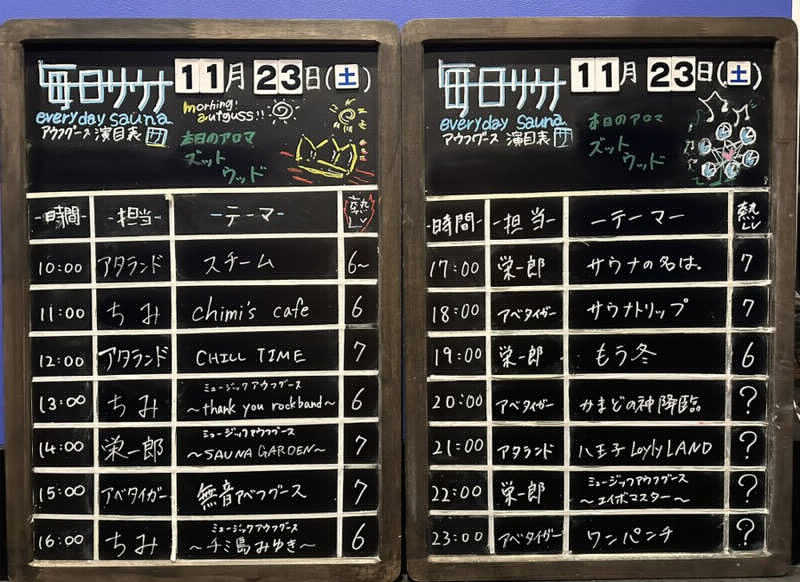 毎日サウナ 11月23日(土)
everyday sauna
アウフグース 演目表
morning!
autguss!!
本日のアロマ
ズット
ウッド
-時間- -担当- -テーマ- 熱LV
10:00 アタランド スチーム 6~
11:00 ちみ chimi's cafe 6
12:00 アタランド CHILL TIME 7
13:00 ちみ ミュージックアウフグース 6
~thank you rockband~
14:00 栄一郎 ミュージックアウフグース 7
~SAUNA GARDEN~
15:00 アベタイガー 無音アベフグース 7
16:00 ちみ ミュージックアウフグース 6
~チミ島みゆき~
毎日サウナ 11月23日(土)
everyday sauna
アウフグース 演目表
本日のアロマ
ズット
ウッド
-時間- -担当- -テーマー 熱LV
17:00 栄一郎 サウナの名は。 7
18:00 アベタイガー サウナトリップ 7
19:00 栄一郎 もう冬 6
20:00 アベタイガー かまどの神降臨 ?
21:00 アタランド 八王子LoylyLAND ?
22:00 栄一郎 ミュージックアウフグース ?
~エイポマスター~
23:00 アベタイガー ワンパンチ ?